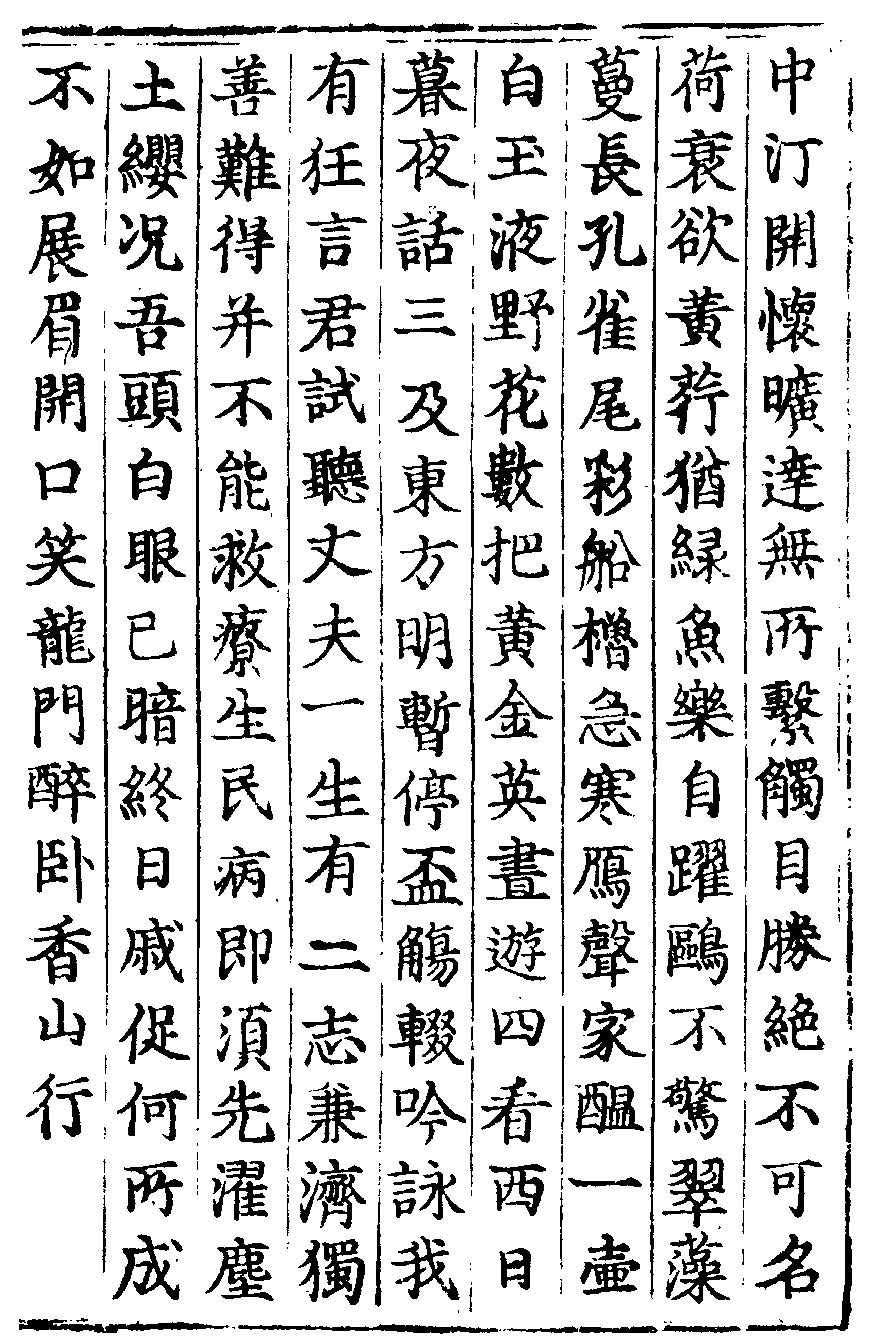 中汀開懷曠達無所繫觸目勝絕不可名
荷衰欲黃荇猶綠魚樂自躍鷗不驚翠藻
蔓長孔雀尾彩船櫓急寒鴈聲家醖一壺
白玉液野花數把黃金英晝遊四看西日
暮夜話三及東方明暫停盃觴輟吟詠我
有狂言君試聽丈夫一生有二志兼濟獨
善難得并不能救療生民病即須先濯塵
土纓況吾頭白眼已暗終日戚促何所成
不如展眉開口笑龍門醉卧香山行